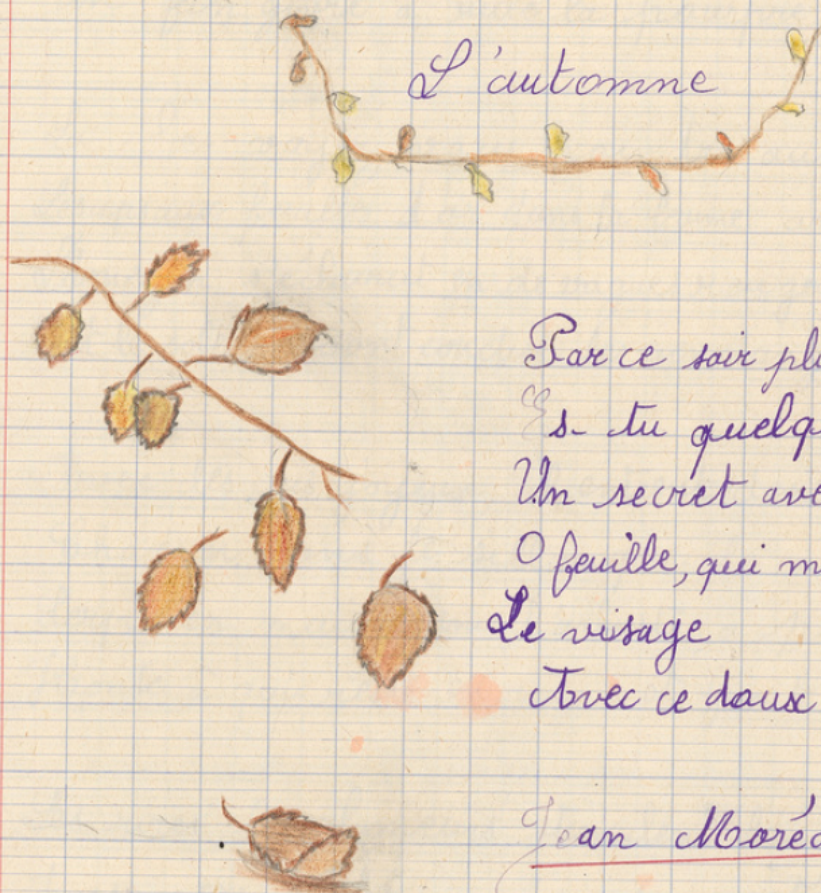 L'automne
Par ce soir plu
Es-tu quelq
Un secret ave
O feuille, qui m
Le visage
Avec ce doux
Jean Moréa